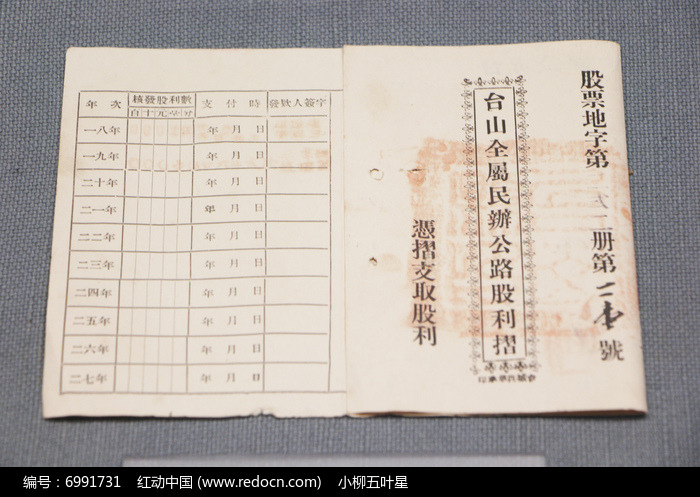 股票地字第 二册第 號
台山全屬民辦公路股利摺
憑摺支取股利
年次 核發股利數 支付時 發欵人簽字
百十元
一八年 年月日
一九年 年月日
二十年 年月日
二一年 年月日
二二年 年月日
二三年 年月日
二四年 年月日
二五年 年月日
二六年 年月日
二七年 年月日
编号：6991731 红动中国 (www.redocn.com) 小柳五叶星